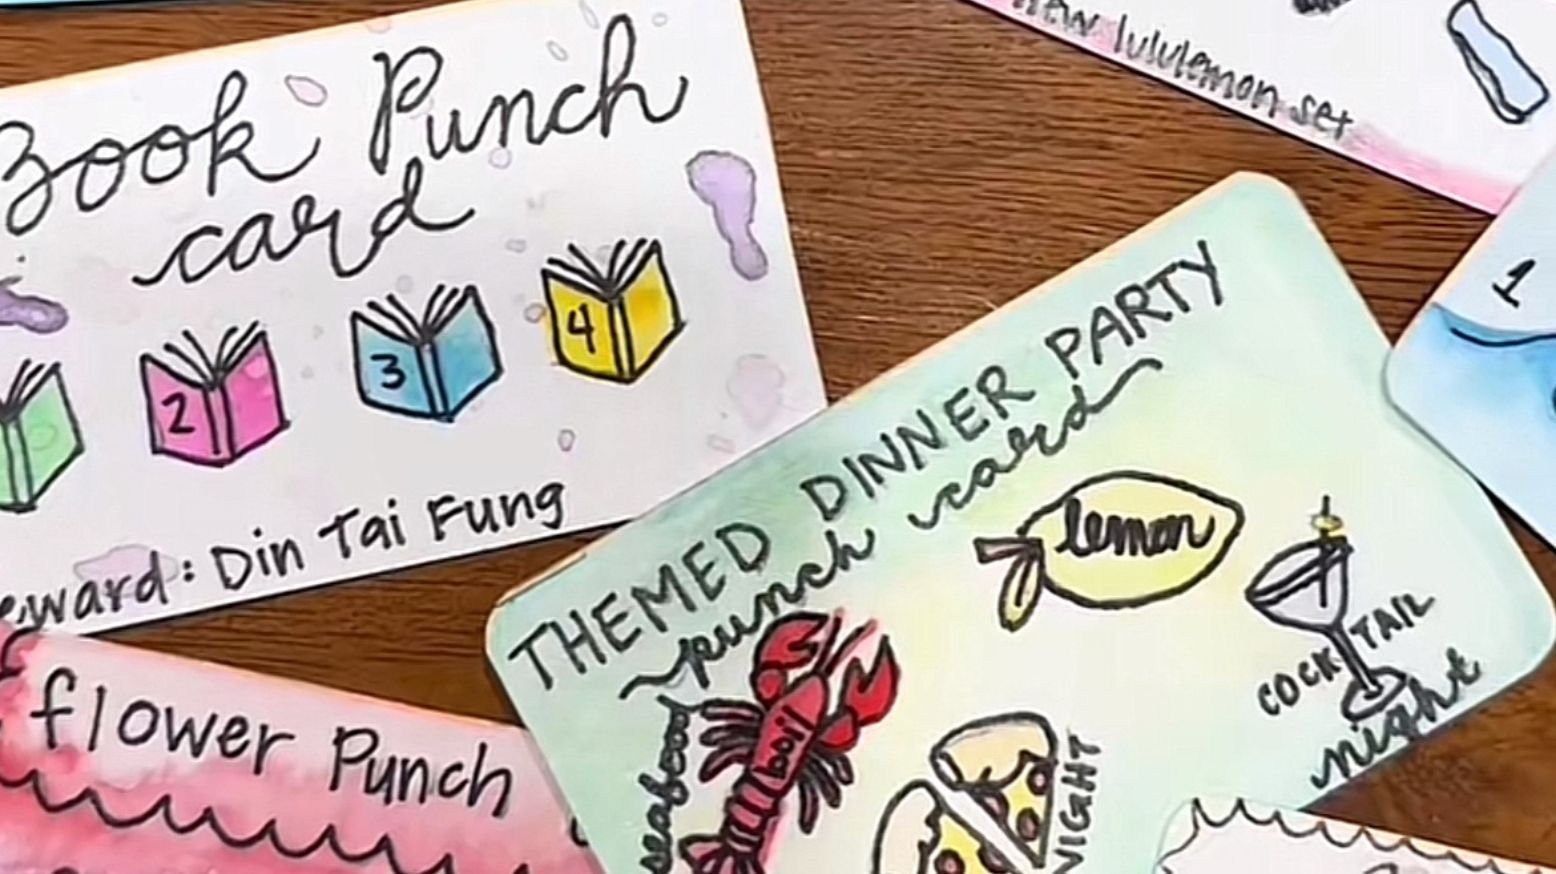 Book Punch
card
2 3 4
eward: Din Tai Fung
new lululemon set
1
THEMED DINNER PARTY
punch card
lemon
COCKTAIL
night
seafood
boil
NIGHT
flower Punch